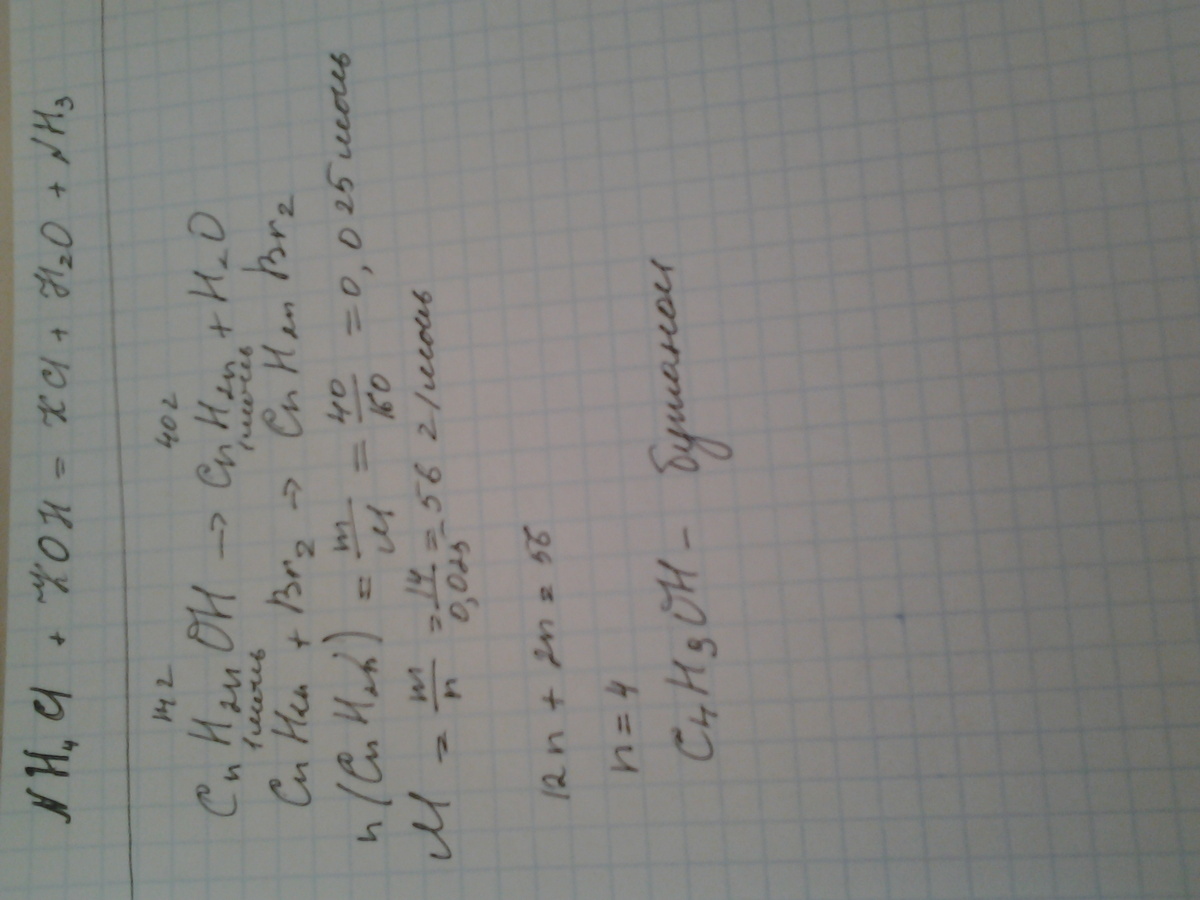 NH₄Cl + XOH = XCl + H₂O + NH₃
m г 40 г
CnH₂nOH → CnH₂n + H₂O
1 моль 1 моль
CnH₂n + Br₂ → CnH₂nBr₂
n(CnH₂n) = m/M = 40/160 = 0,025 моль
M = m/n = 14/0,025 = 56 г/моль
12n + 2n = 56
n = 4
C₄H₉OH – бутанол